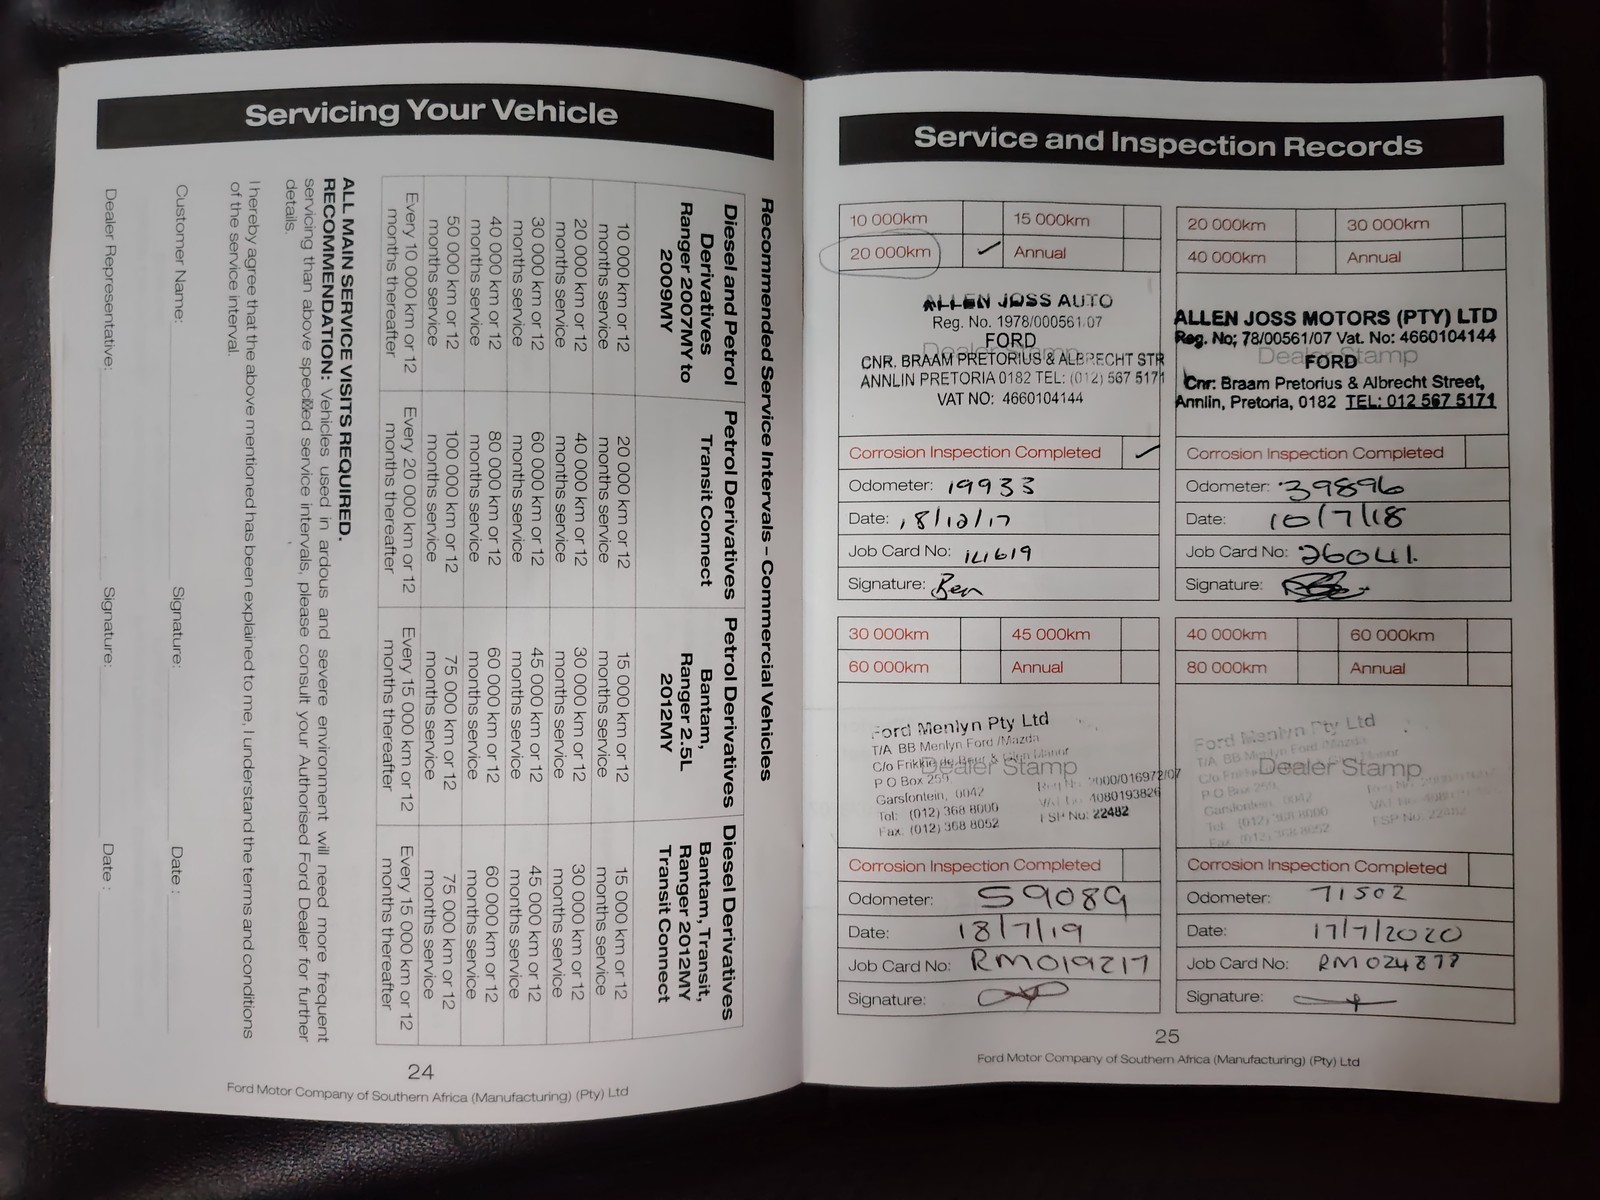 Servicing Your Vehicle
Recommended Service Intervals – Commercial Vehicles
Diesel and Petrol Derivatives Ranger 2007MY to 2009MY
Petrol Derivatives Transit Connect
Petrol Derivatives Bantam, Ranger 2.5L 2012MY
Diesel Derivatives Bantam, Transit, Ranger 2012MY Transit Connect
10 000 km or 12 months service
20 000 km or 12 months service
15 000 km or 12 months service
15 000 km or 12 months service
20 000 km or 12 months service
40 000 km or 12 months service
30 000 km or 12 months service
30 000 km or 12 months service
30 000 km or 12 months service
60 000 km or 12 months service
45 000 km or 12 months service
45 000 km or 12 months service
40 000 km or 12 months service
80 000 km or 12 months service
60 000 km or 12 months service
60 000 km or 12 months service
50 000 km or 12 months service
100 000 km or 12 months service
75 000 km or 12 months service
75 000 km or 12 months service
Every 10 000 km or 12 months thereafter
Every 20 000 km or 12 months thereafter
Every 15 000 km or 12 months thereafter
Every 15 000 km or 12 months thereafter
ALL MAIN SERVICE VISITS REQUIRED.
RECOMMENDATION: Vehicles used in ardous and severe environment will need more frequent
servicing than above specified service intervals, please consult your Authorised Ford Dealer for further
details.
I hereby agree that the above mentioned has been explained to me, I understand the terms and conditions
of the service interval.
Customer Name: Signature: Date :
Dealer Representative: Signature: Date :
24
Ford Motor Company of Southern Africa (Manufacturing) (Pty) Ltd
Service and Inspection Records
10 000km 15 000km
20 000km ✓ Annual
ALLEN JOSS AUTO
Reg. No. 1978/000561/07
FORD
Dealer Stamp
CNR. BRAAM PRETORIUS & ALBRECHT STR
ANNLIN PRETORIA 0182 TEL: (012) 567 5171
VAT NO: 4660104144
Corrosion Inspection Completed ✓
Odometer: 19933
Date: 18/12/17
Job Card No: 141619
Signature: Ben
20 000km 30 000km
40 000km Annual
ALLEN JOSS MOTORS (PTY) LTD
Reg. No; 78/00561/07 Vat. No: 4660104144
Dealer Stamp
FORD
Cnr: Braam Pretorius & Albrecht Street,
Annlin, Pretoria, 0182 TEL: 012 567 5171
Corrosion Inspection Completed
Odometer: 39896
Date: 10/7/18
Job Card No: 26041.
Signature:
30 000km 45 000km
60 000km Annual
Ford Menlyn Pty Ltd
T/A BB Menlyn Ford /Mazda
C/o Frikkie de Beer & Glen Manor
Dealer Stamp
P O Box 259
Garsfontein, 0042
Tel: (012) 368 8000
Fax. (012) 368 8052
Reg No 2000/016972/07
VAT No 4080193826
FSP Nu: 22482
Corrosion Inspection Completed
Odometer: 59089
Date: 18/7/19
Job Card No: RM019217
Signature:
40 000km 60 000km
80 000km Annual
Ford Menlyn Pty Ltd
T/A BB Menlyn Ford /Mazda
Dealer Stamp
P O Box 259,
Garsfontein, 0042
Tel: (012) 368 8000
Fax (012) 368 8052
FSP No: 22482
Corrosion Inspection Completed
Odometer: 71502
Date: 17/7/2020
Job Card No: RM024877
Signature:
25
Ford Motor Company of Southern Africa (Manufacturing) (Pty) Ltd